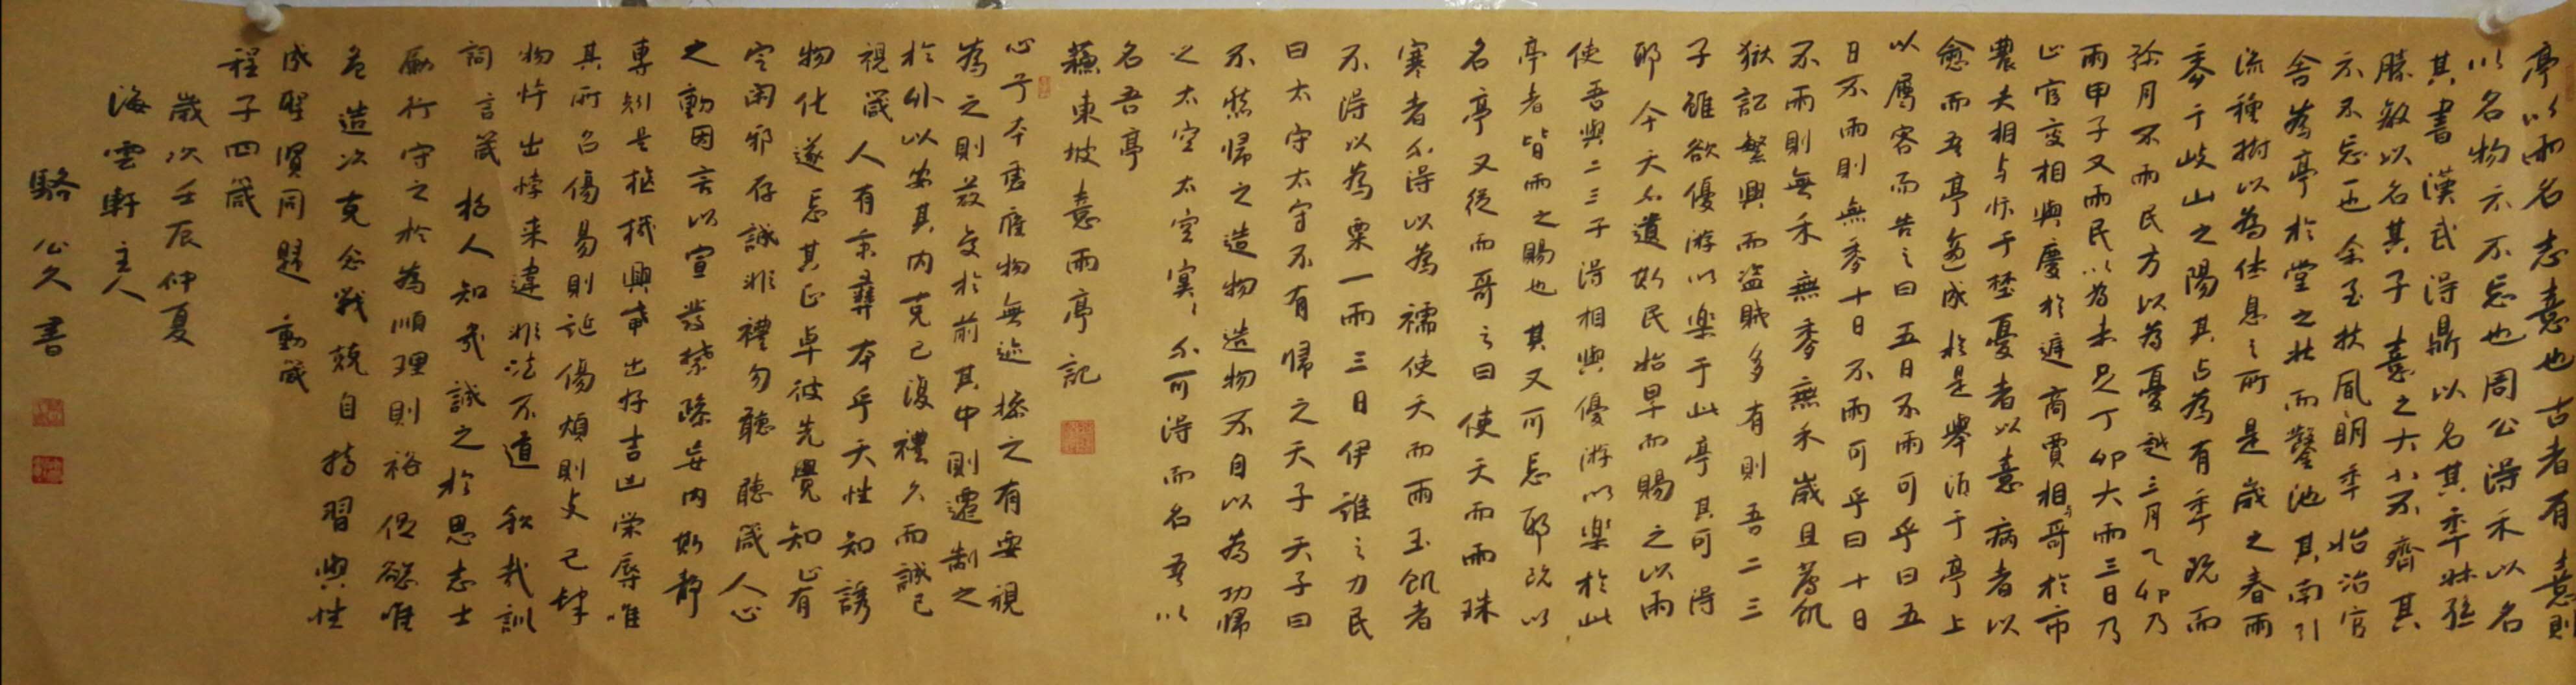 亭以雨名志憙也古者有憙則
以名物示不忘也周公得禾以名
其書漢武得鼎以名其年叔孫
勝敵以名其子憙之大小不齊其
示不忘一也余至扶風朙年始治官
舍為亭於堂之北而鑿池其南引
流種樹以為休息之所是歲之春雨
麥于岐山之陽其占為有年既而
弥月不雨民方以為憂越三月乙卯乃
雨甲子又雨民以為未足丁卯大雨三日乃
止官吏相與慶於庭商賈相與哥於市
農夫相与忭于埜憂者以憙病者以
愈而吾亭適成於是舉酒于亭上
以屬客而告之曰五日不雨可乎曰五
日不雨則無麥十日不雨可乎曰十日
不雨則無禾無麥無禾歲且荐飢
獄訟繁興而盜賊多有則吾二三
子雖欲優游以樂于此亭其可得
耶今天不遺斯民始旱而賜之以雨
使吾與二三子得相與優游以樂於此
亭者皆雨之賜也其又可忘耶既以
名亭又從而哥之曰使天而雨珠
寒者不得以為襦使天而雨玉飢者
不得以為粟一雨三日伊誰之力民
曰太守太守不有歸之天子天子曰
不然歸之造物造物不自以為功歸
之太空太空冥冥不可得而名吾以
名吾亭
蘇東坡憙雨亭記
心兮本虛應物無迹操之有要視
為之則蔽交於前其中則遷制之
於外以安其内克己復禮久而誠已
視箴人有秉彝本乎天性知誘
物化遂忘其正卓彼先覺知止有
定閑邪存誠非禮勿聽聽箴人心
之動因言以宣發禁躁妄内斯靜
專矧是樞機興戎出好吉凶榮辱唯
其所召傷易則誕傷煩則支己肆
物忤出悖来違非法不道欽哉訓
詞言箴哲人知幾誠之於思志士
勵行守之於為順理則裕從慾唯
危造次克念戰兢自持習與性
成聖賢同歸動箴
程子四箴
歲次壬辰仲夏
海雲軒主人
駱公久書